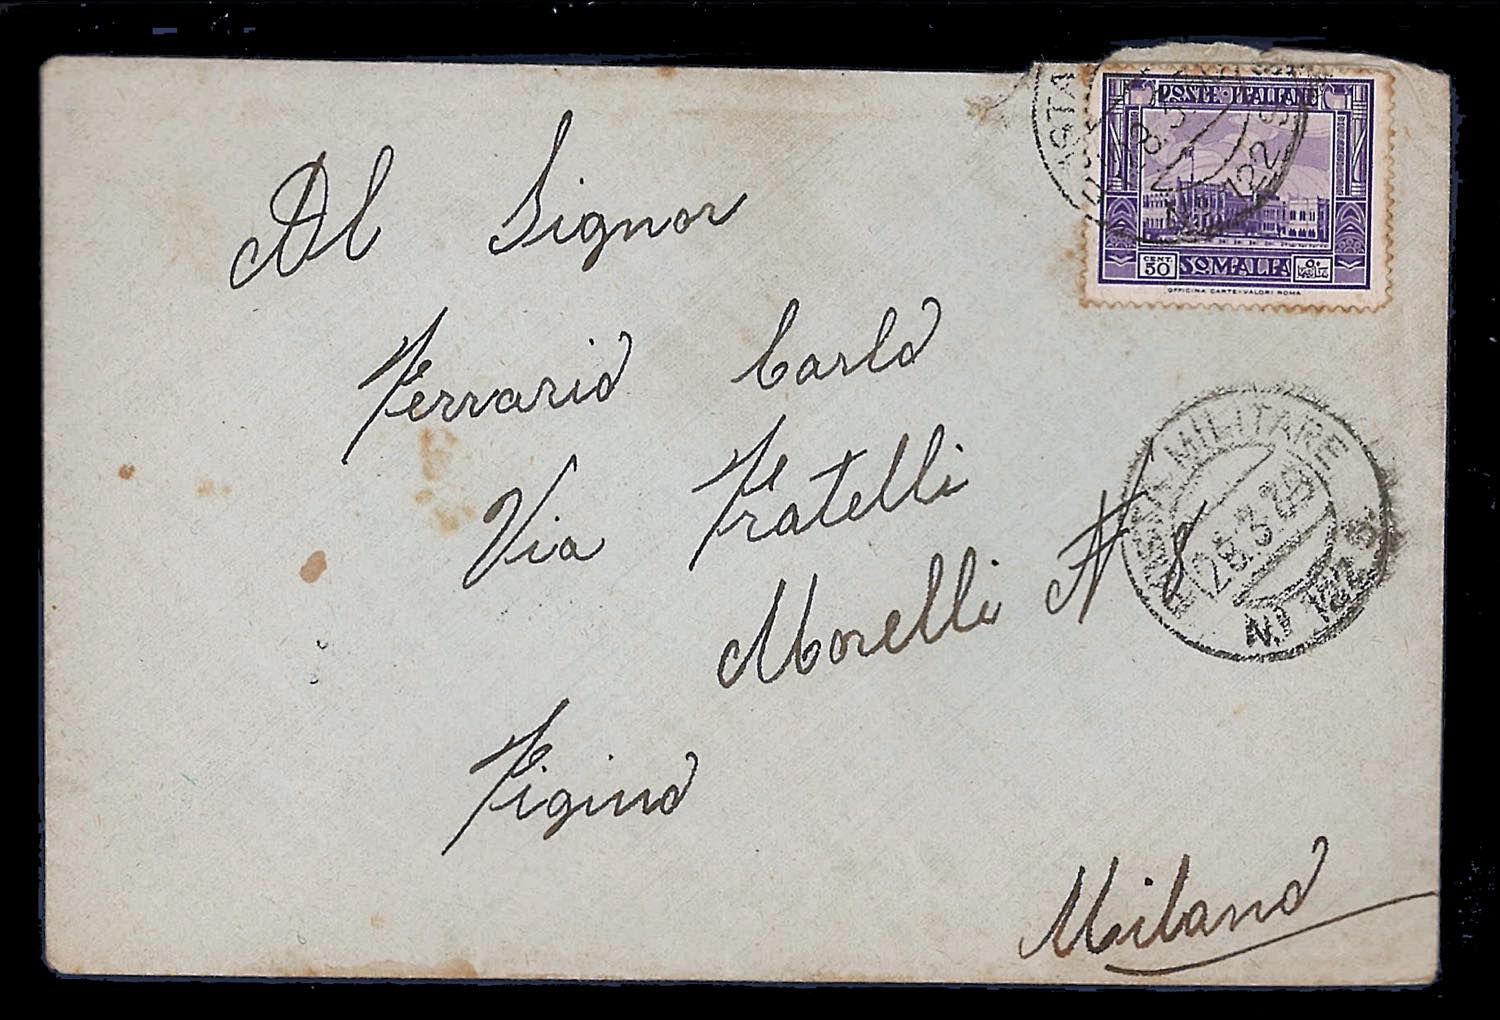 POSTE ITALIANE
CENT. 50 SOMALIA
OFFICINA CARTE-VALORI ROMA
Al Signor
Ferrario Carlo
Via Fratelli
Morelli N 8
Figino
Milano
POSTA MILITARE
N. 122 S
122 S